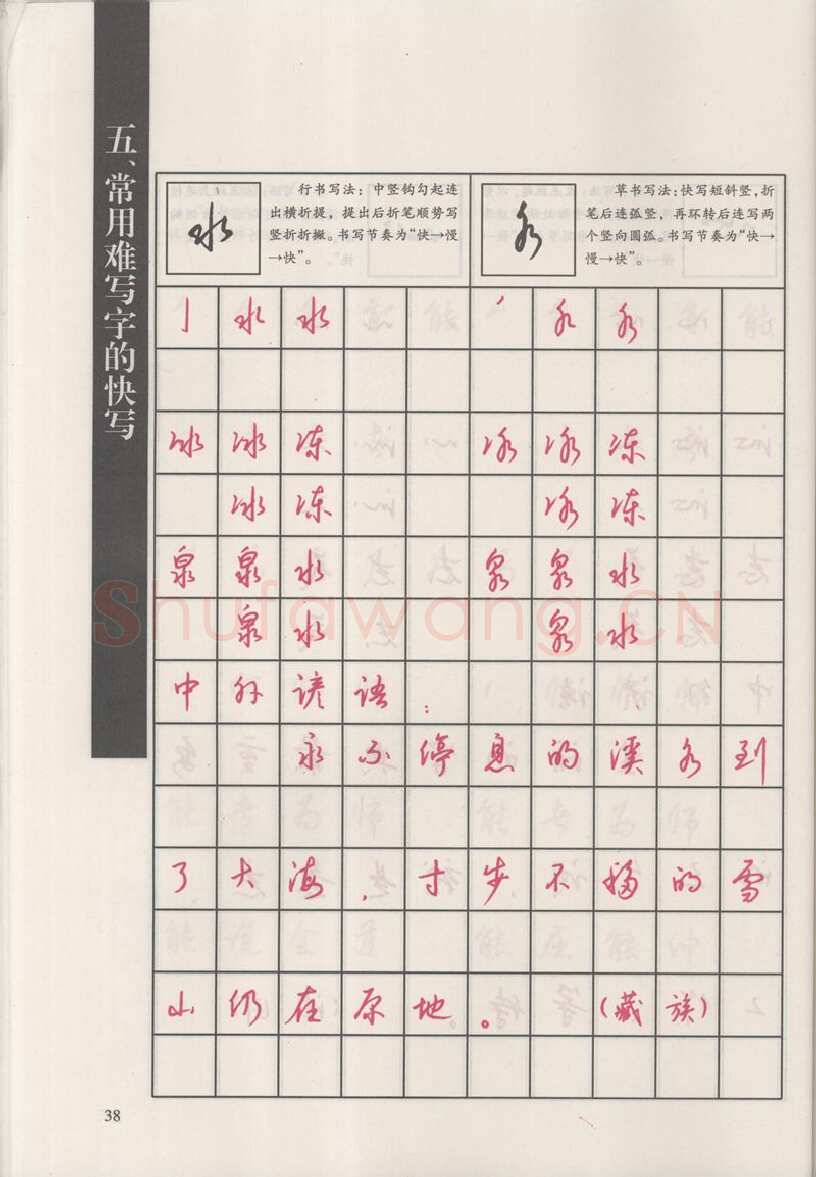 五、常用难写字的快写
水
行书写法：中竖钩勾起连
出横折提，提出后折笔顺势写
竖折折撇。书写节奏为“快→慢
→快”。
水
草书写法：快写短斜竖，折
笔后连弧竖，再环转后连写两
个竖向圆弧。书写节奏为“快→
慢→快”。
亅 水 水 水 水
冰 冰 冻 冰 冰 冻
冰 冻 冰 冻
泉 泉 水 泉 泉 水
泉 水 泉 水
中 外 谚 语 ：
永 不 停 息 的 溪 水 到
了 大 海 ， 寸 步 不 移 的 雪
山 仍 在 原 地 。 （藏 族）
Shufawang.CN
38